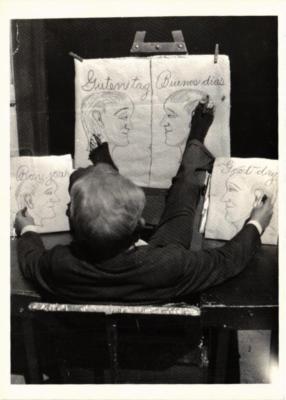 Guten tag
Buenos dias
Bonjour
Good-day